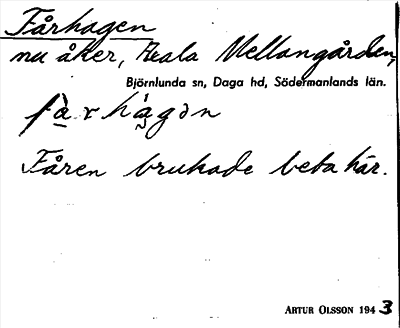 Fårhagen
nu åker, Åsala Mellangården,
Björnlunda sn, Daga hd, Södermanlands län.
Fåren brukade beta här.
ARTUR OLSSON 1943